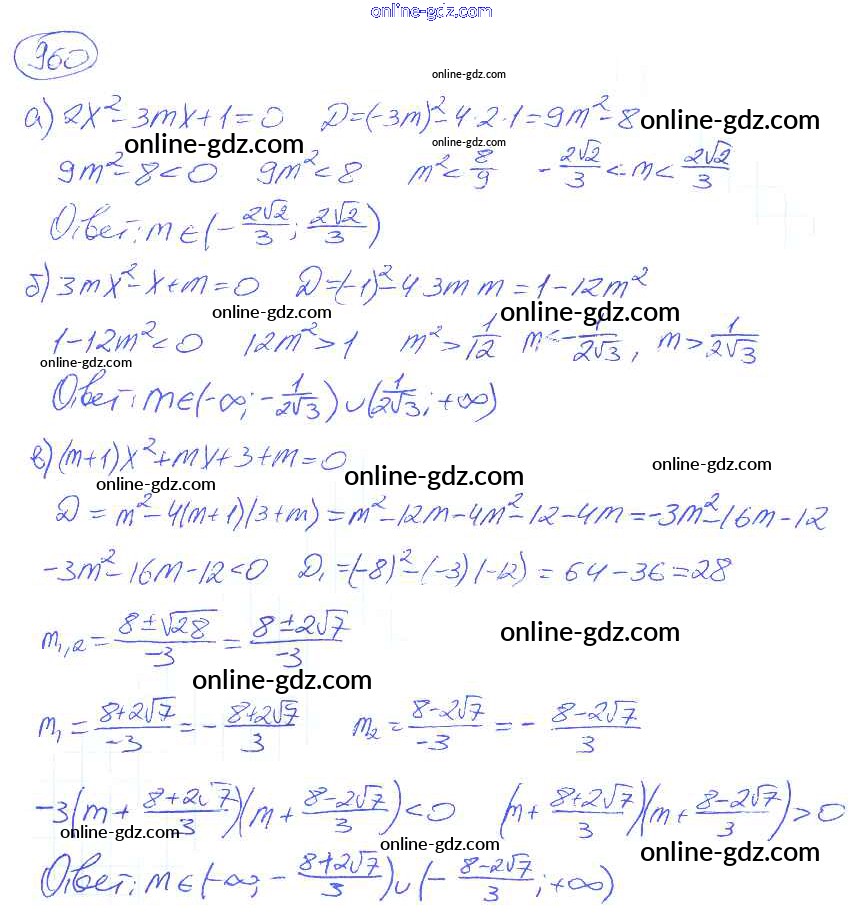 online-gdz.com
960
online-gdz.com
а) 2x² - 3mx + 1 = 0 D = (-3m)² - 4·2·1 = 9m² - 8 online-gdz.com
online-gdz.com online-gdz.com
9m² - 8 < 0 9m² < 8 m² < 8/9 - 2√2/3 < m < 2√2/3
Ответ: m ∈ (- 2√2/3 ; 2√2/3)
б) 3mx² - x + m = 0 D = (-1)² - 4 3m m = 1 - 12m²
online-gdz.com online-gdz.com
1 - 12m² < 0 12m² > 1 m² > 1/12 m < - 1/2√3 , m > 1/2√3
online-gdz.com
Ответ: m ∈ (-∞; - 1/2√3) ∪ (1/2√3 ; +∞)
в) (m+1)x² + mx + 3 + m = 0
online-gdz.com online-gdz.com online-gdz.com
D = m² - 4(m+1)(3+m) = m² - 12m - 4m² - 12 - 4m = -3m² - 16m - 12
-3m² - 16m - 12 < 0 D₁ = (-8)² - (-3)(-12) = 64 - 36 = 28
m₁,₂ = 8±√28/-3 = 8±2√7/-3 online-gdz.com
online-gdz.com
m₁ = 8+2√7/-3 = - 8+2√7/3 m₂ = 8-2√7/-3 = - 8-2√7/3
-3(m + 8+2√7/3)(m + 8-2√7/3) < 0 (m + 8+2√7/3)(m + 8-2√7/3) > 0
online-gdz.com online-gdz.com online-gdz.com
Ответ: m ∈ (-∞; - 8+2√7/3) ∪ (- 8-2√7/3 ; +∞)